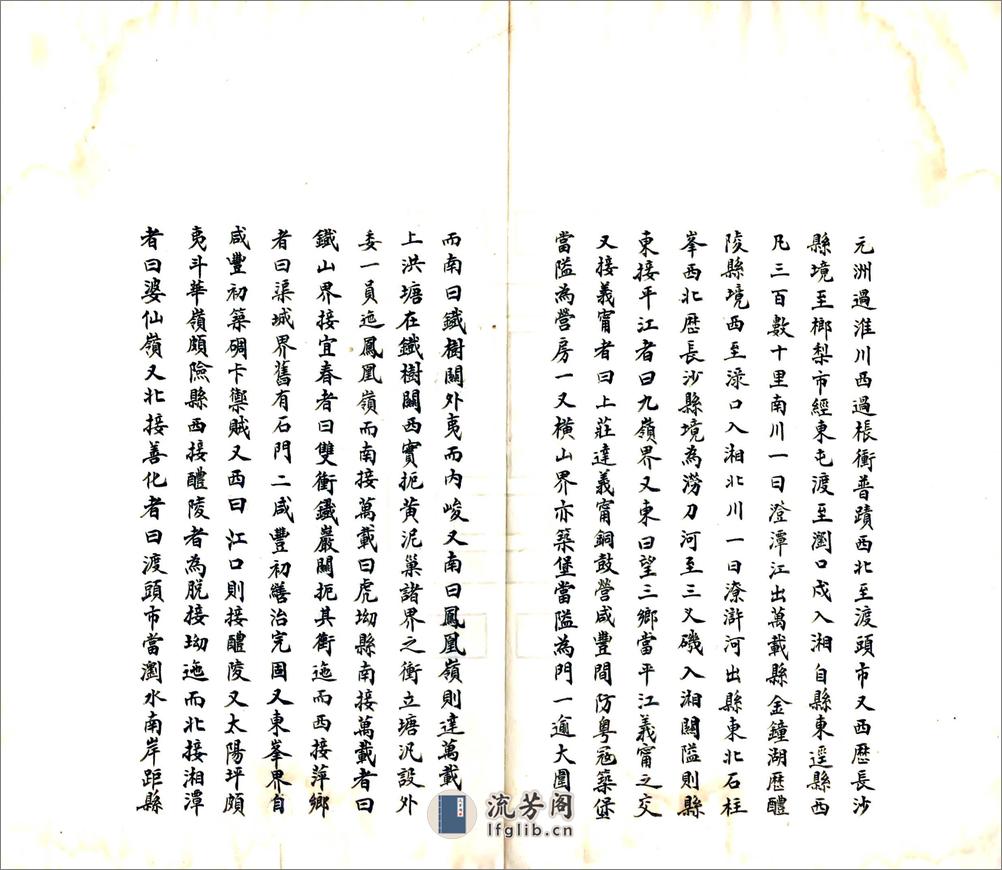 元洲過淮川西過棖衝普蹟西北至渡頭市又西歷長沙
縣境至㮾梨市經東屯渡至瀏口戍入湘自縣東逕縣西
凡三百數十里南川一曰澄潭江出萬載縣金鐘湖歷醴
陵縣境西至淥口入湘北川一曰潦滸河出縣東北石柱
峯西北歷長沙縣境為澇刀河至三叉磯入湘關隘則縣
東接平江者曰九嶺界又東曰望三鄉當平江義甯之交
又接義甯者曰上莊達義甯銅鼓營咸豐間防粵寇築堡
當隘為營房一又橫山界亦築堡當隘為門一逾大圍
而南曰鐵樹關外夷而內峻又南曰鳳凰嶺則達萬載
上洪塘在鐵樹關西實扼黃泥巢諸界之衝立塘汛設外
委一員迤鳳凰嶺而南接萬載曰虎坳縣南接萬載者曰
鐵山界接宜春者曰雙衝鐵巖關扼其衝迤而西接萍鄉
者曰渠城界舊有石門二咸豐初繕治完固又東峯界自
咸豐初築碉卡禦賊又西曰江口則接醴陵又太陽坪頗
夷斗華嶺頗險縣西接醴陵者為脫接坳迤而北接湘潭
者曰婆仙嶺又北接善化者曰渡頭市當瀏水南岸距縣
流芳阁
lfglib.cn